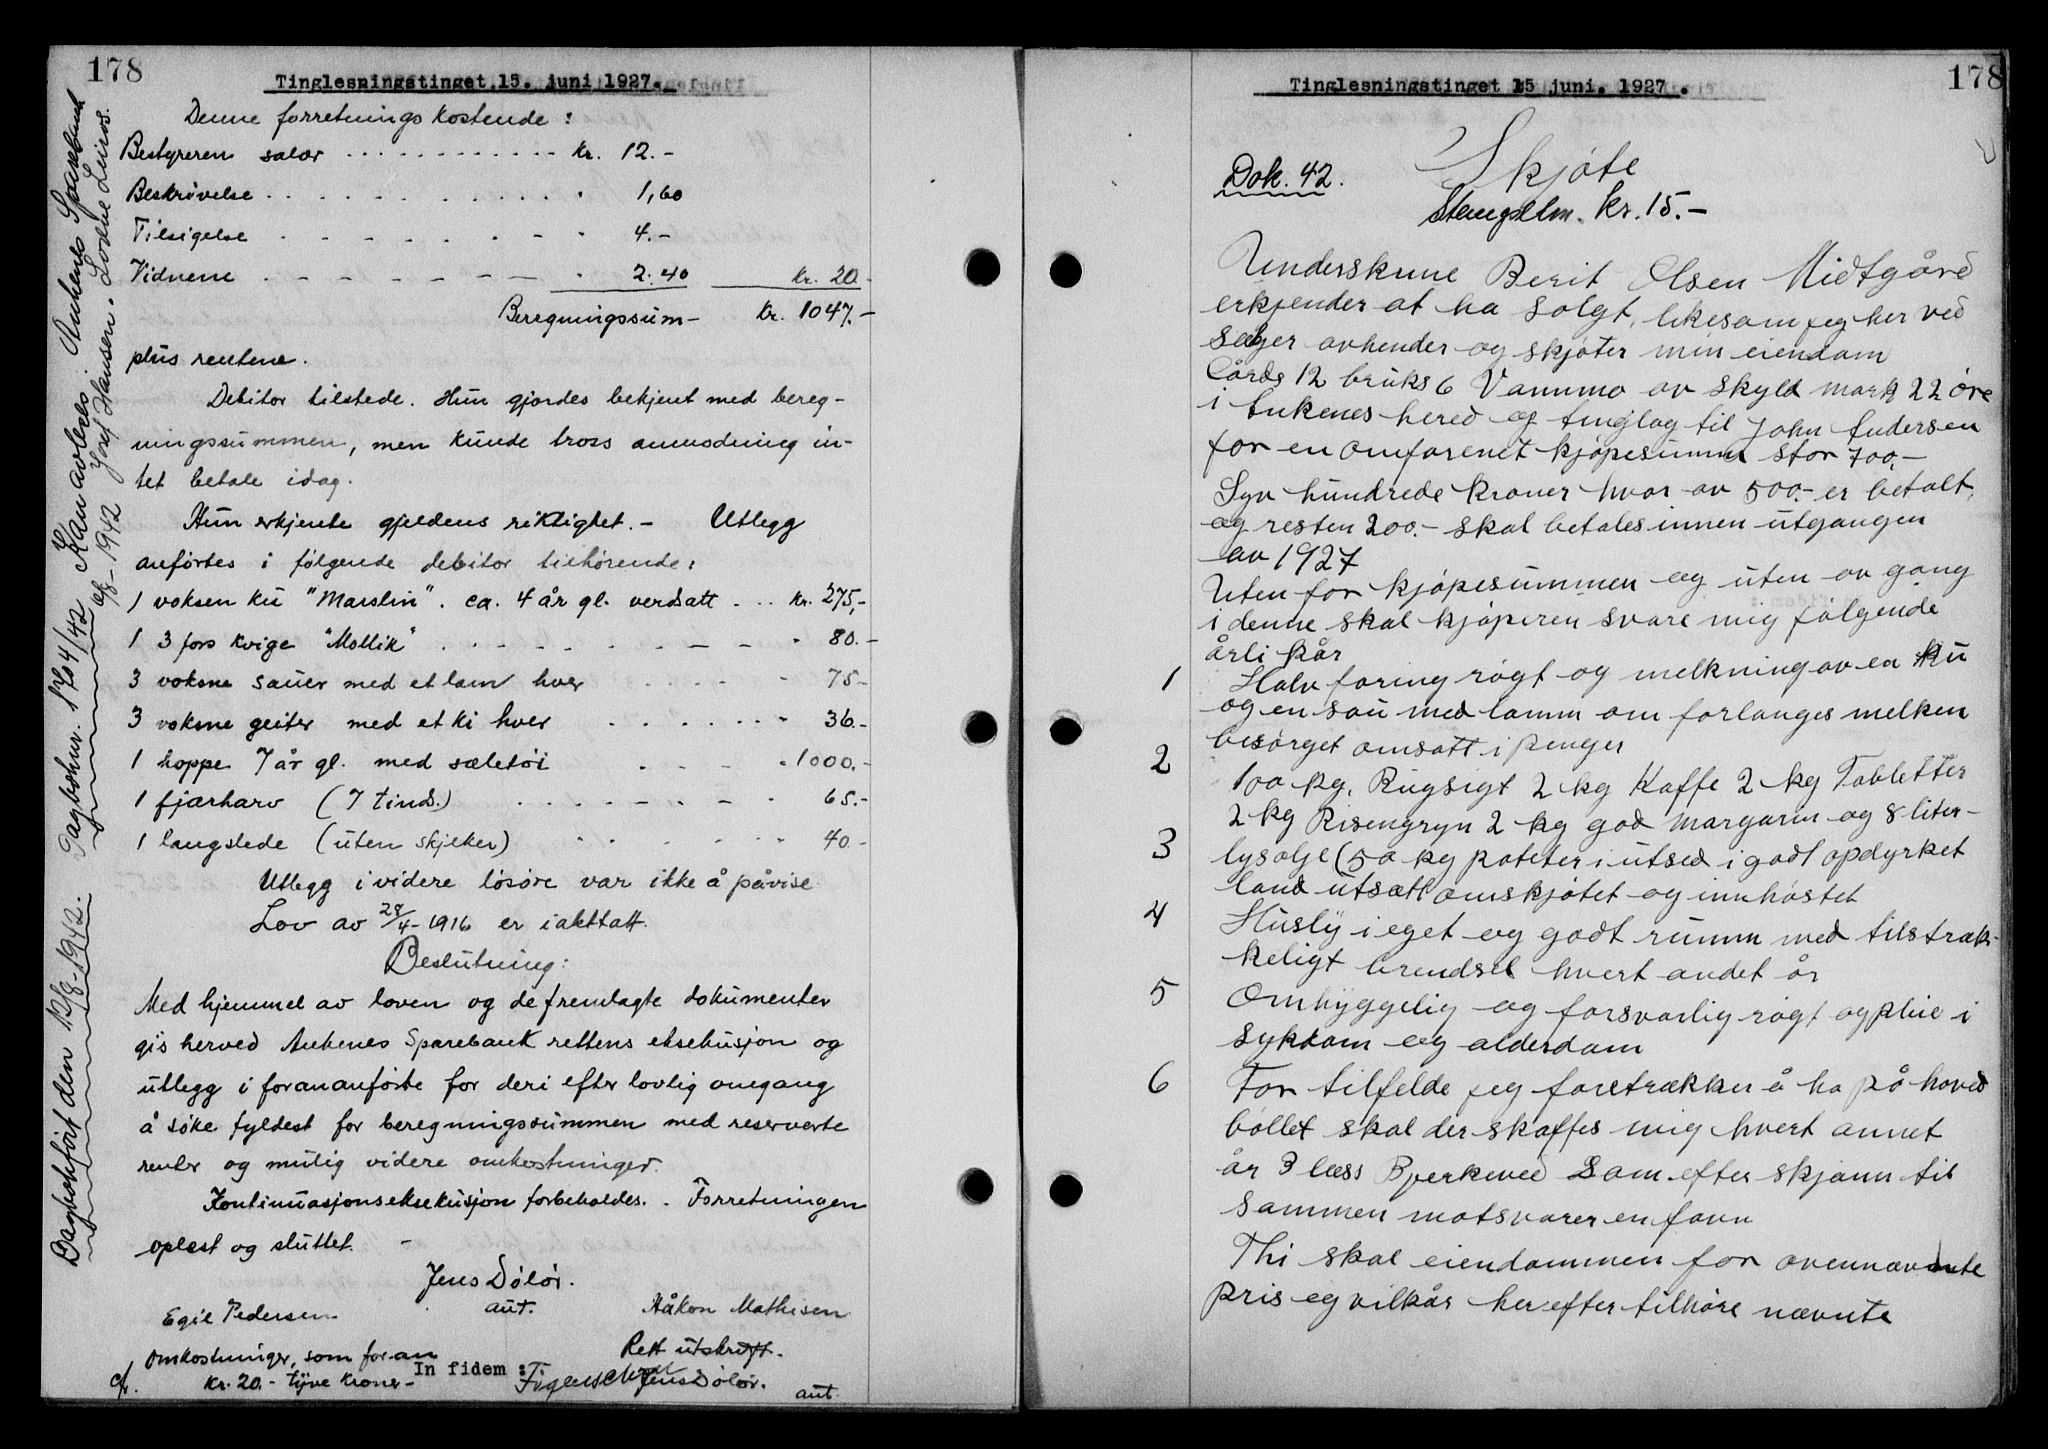 178
Tinglesningstinget 15. juni 1927.
Denne forretnings kostende :
Bestyreren salær . . . . . . . kr. 12.-
Beskrivelse . . . . . . . " 1,60
Tilsigelse - - - - - - " 4.-
Vidnene - - - - - - " 2.40 kr. 20.-
Beregningssum- kr. 1047.-
plus rentene.
Debitor tilstede. Hun gjordes bekjent med bereg-
ningssummen, men kunde tross anmodning in-
tet betale idag.
Hun erkjente gjeldens riktighet. - Utlegg
anførtes i følgende debitor tilhørende:
1 voksen ku "Marslin". ca. 4 år gl. verdsatt . .. kr. 275,-
1 3 fjors kvige "Mollik" . - - - - - " 80.-
3 voksne sauer med et lam hver . . . . " 75-
3 voksne geiter med et ki hver . . . . . " 36.-
1 hoppe 7 år gl. med sæletøi . - - " 1000.-
1 fjærharv (7 tinds.) . . . - - - " 65.-
1 langslede (uten skjeker) . . . . " 40.-
Utlegg i videre løsøre var ikke å påvise.
Lov av 28/4-1916 er iakttatt.
Beslutning:
Med hjemmel av loven og de fremlagte dokumenter
gis herved Ankenes Sparebank rettens eksekusjon og
utlegg i foranførte for deri efter lovlig omgang
å søke fyldest for beregningssummen med reserverte
renter og mulig videre omkostninger.
Kontinuasjonseksekusjon forbeholdes. - Forretningen
oplest og sluttet. -
Jens Dölör.
aut.
Egil Pedersen Håkon Mathisen
Omkostninger, som foran Rett utskrift.
kr. 20.- tyve kroner- In fidem : Jens Dölör.
aut.
Dagbokført den 13/8-1942. Dagboknr. 1704/42 Kan avleses. Ankenes Sparebank
4/8-1942 Josef Hansen. Lodve Leiros.
Tinglesningstinget 15 juni. 1927 .
178
Skjöte
Dok. 42.
Stempelm. kr. 15.-
Underskrivne Berit Olsen Midtgård
erkjender at ha solgt, likesom jeg her ved
selger avhender og skjøter min eiendom
Gårds 12 bruks 6 Vammo av skyld mark 22 öre
i Ankenes hered og tinglag til John Andersen
for en omforenet kjøpesumm stor 700.-
Syv hundrede kroner hvor av 500.- er betalt,
og resten 200.- skal betales innen utgangen
av 1927
Uten for kjøpesummen og uten av gang
i denne skal kjøperen svare mig følgende
årli kår
1 Halv foring røgt og melkning av en ku
og en sau med lamm om forlanges melken
besørget omsatt i penger
2 100 kg. Rugsigt 2 kg Kaffe 2 kg Tabletter
2 kg Risengryn 2 kg god margarin og 8 liter-
3 lysolje (50 kg poteter i utsed i godt opdyrket
land utsatt omskjøtet og innhøstet
4 Husly i eget og godt rumm med tilstræk-
keligt brendsel hvert andet år
5 Omhyggelig og forsvarlig røgt og pleie i
sykdom og alderdom
6 For tilfelde jeg foretrækker å ha på hoved
bøllet skal der skaffes mig hvert annet
år 3 læss Bjerkeved som efter skjønn til
sammen motsvarer en favn
Thi skal eiendommen for ovennævnte
pris og vilkår herefter tilhøre nævnte